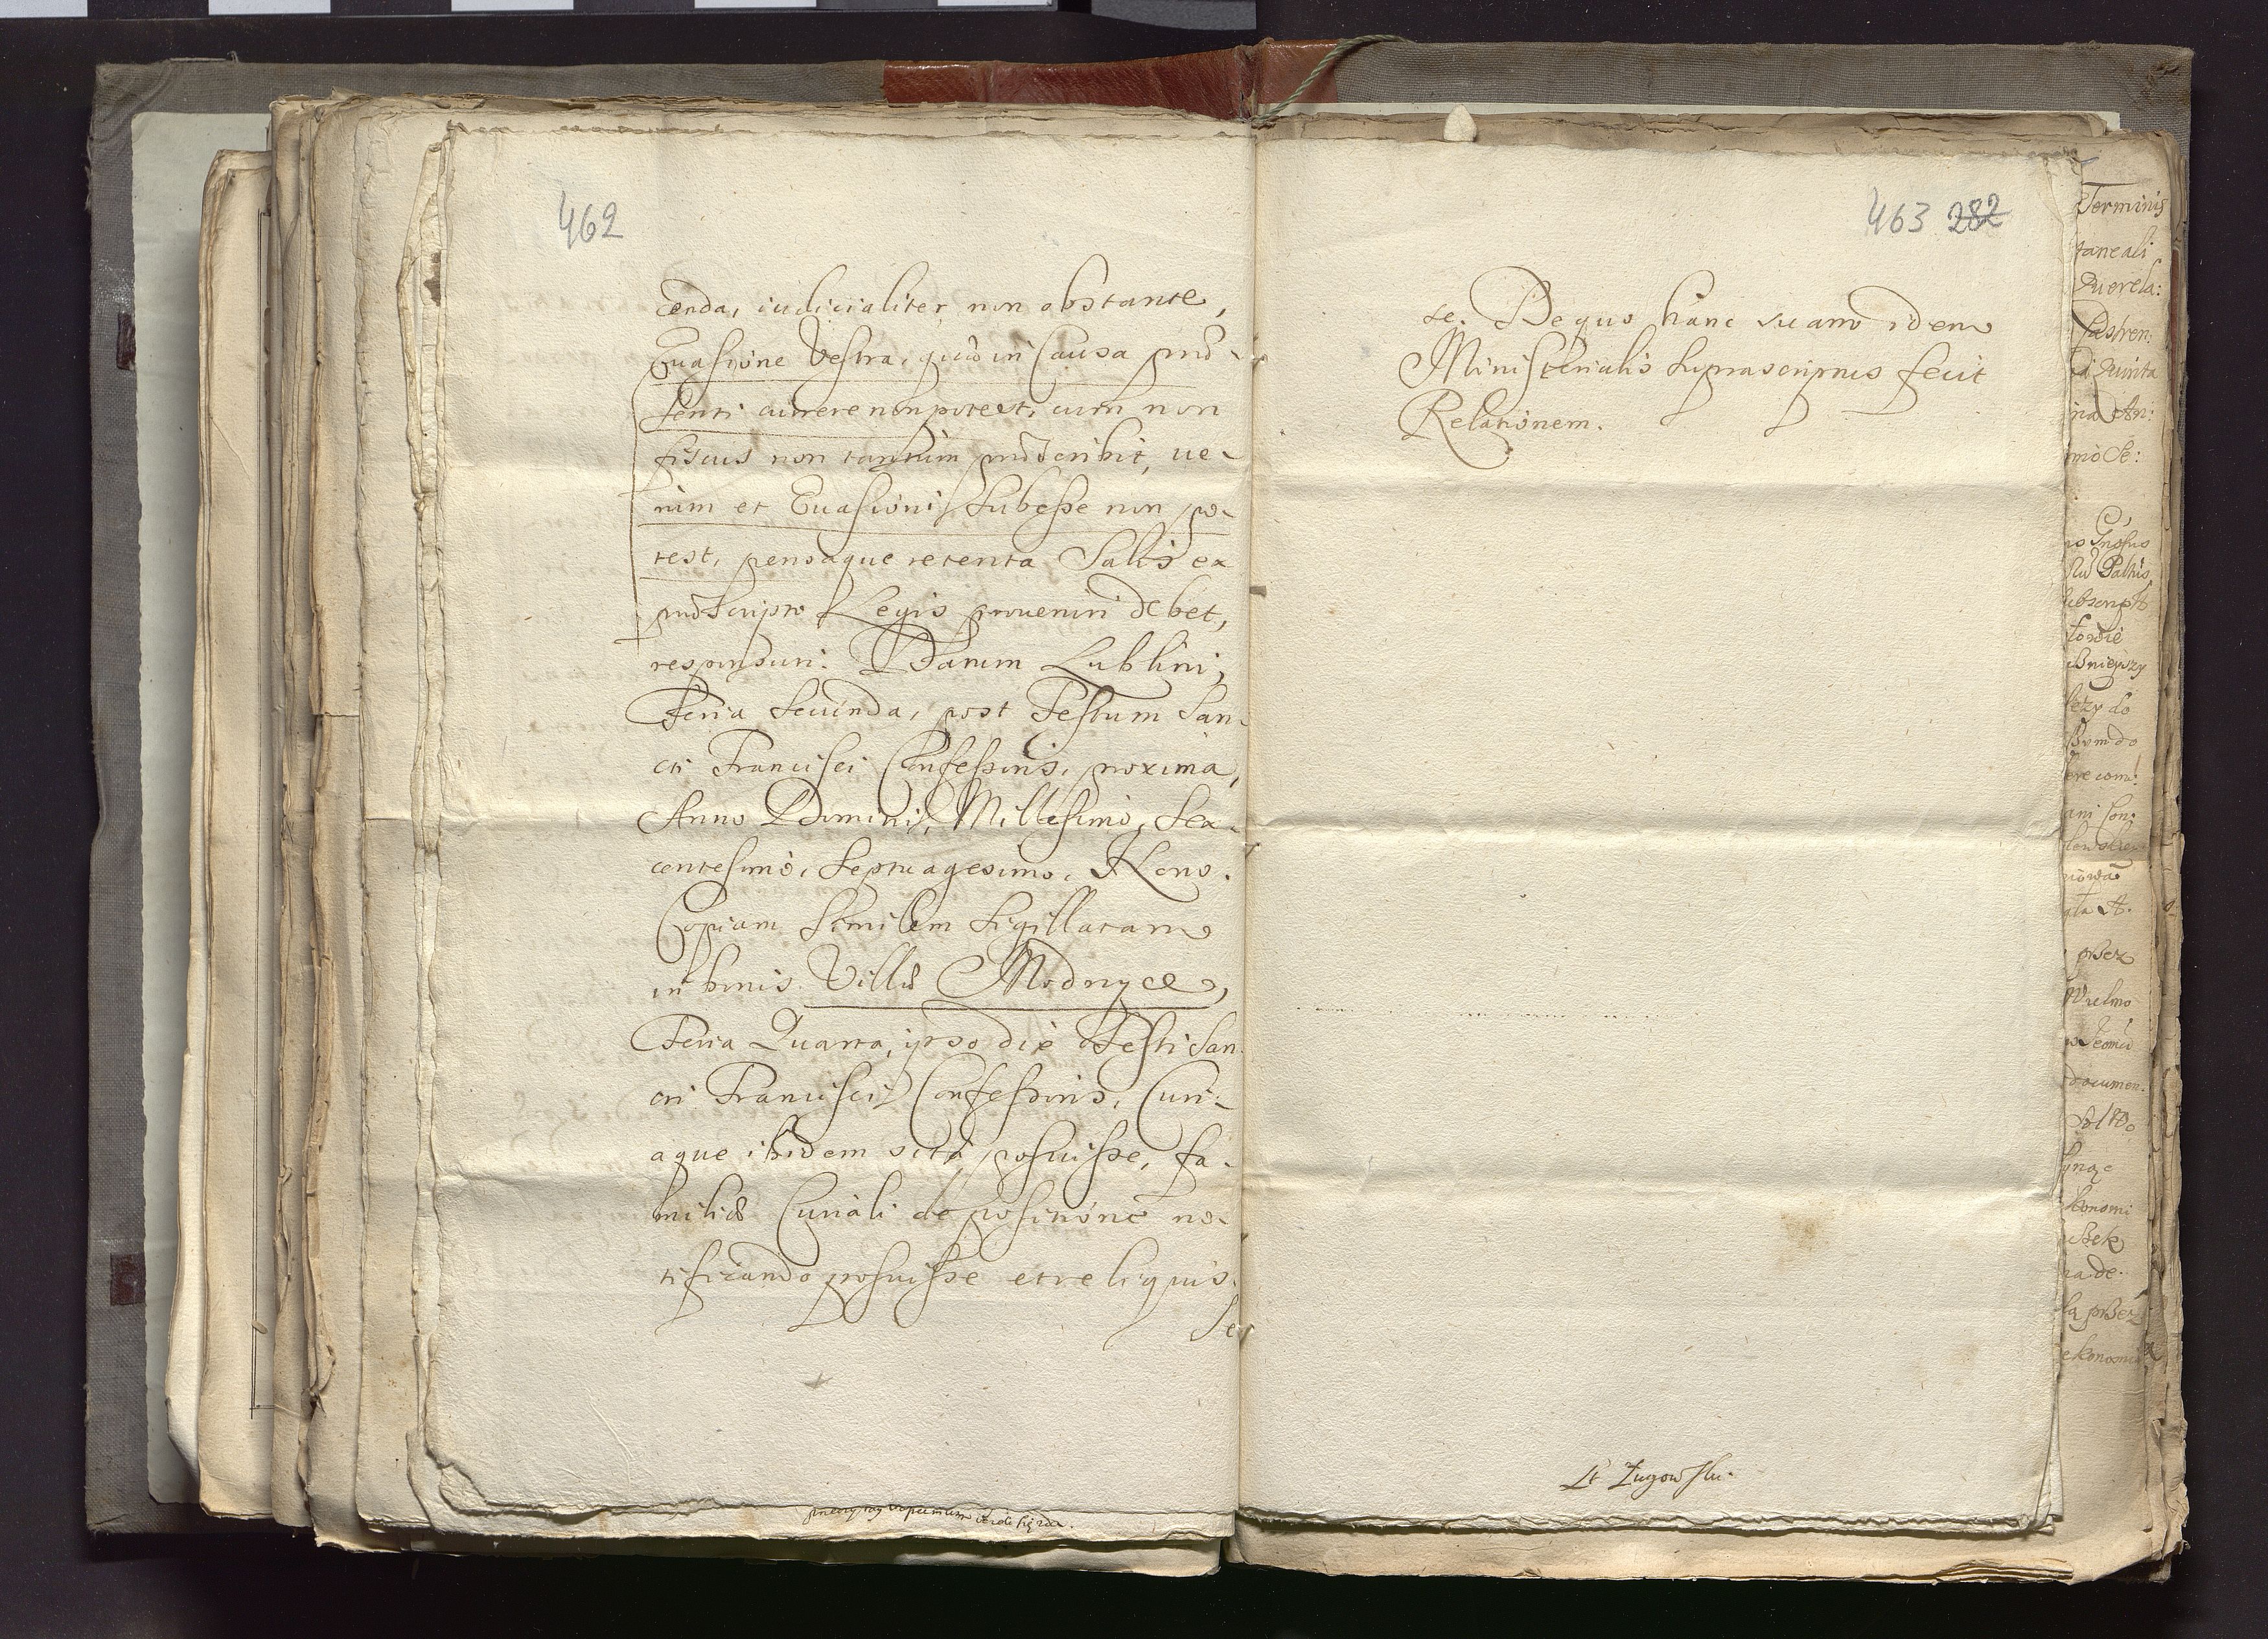 462
cenda, iudicialiter non obstante,
Euasione Vestra, quae in Causa prae-
senti currere non potest, cum non
fiscus non tantum praescribit, ue-
rum et Euasioni subesse non po-
test, penaque retenta Salis ex
praescripto Legis proueniri debet,
responsuri. Datum Lublini,
Feria Secunda, post Festum San-
cti Francisci Confessoris, proxima,
Anno Domini, Millesimo, Sex-
centesimo, Septuagesimo, Nono.
Copiam Similem Sigillatam
in bonis Villae Modryce,
Feria Quarta, ipso die Festi San-
cti Francisci Confessoris, Curi-
aque ibidem sita posuisse, fa-
miliae Curiali de positione no-
tificando posuisse et reliquis-
se
463 282
se. De quo hanc suam idem
Ministerialis Suprascriptus fecit
Relationem.
Terminis
taneali
Querela:
Castren:
Quinta
An:
mo Se:
Pattis
do
Con:
przez
Wielmo
documen:
ekonomi
ra de
przez
ekonomi